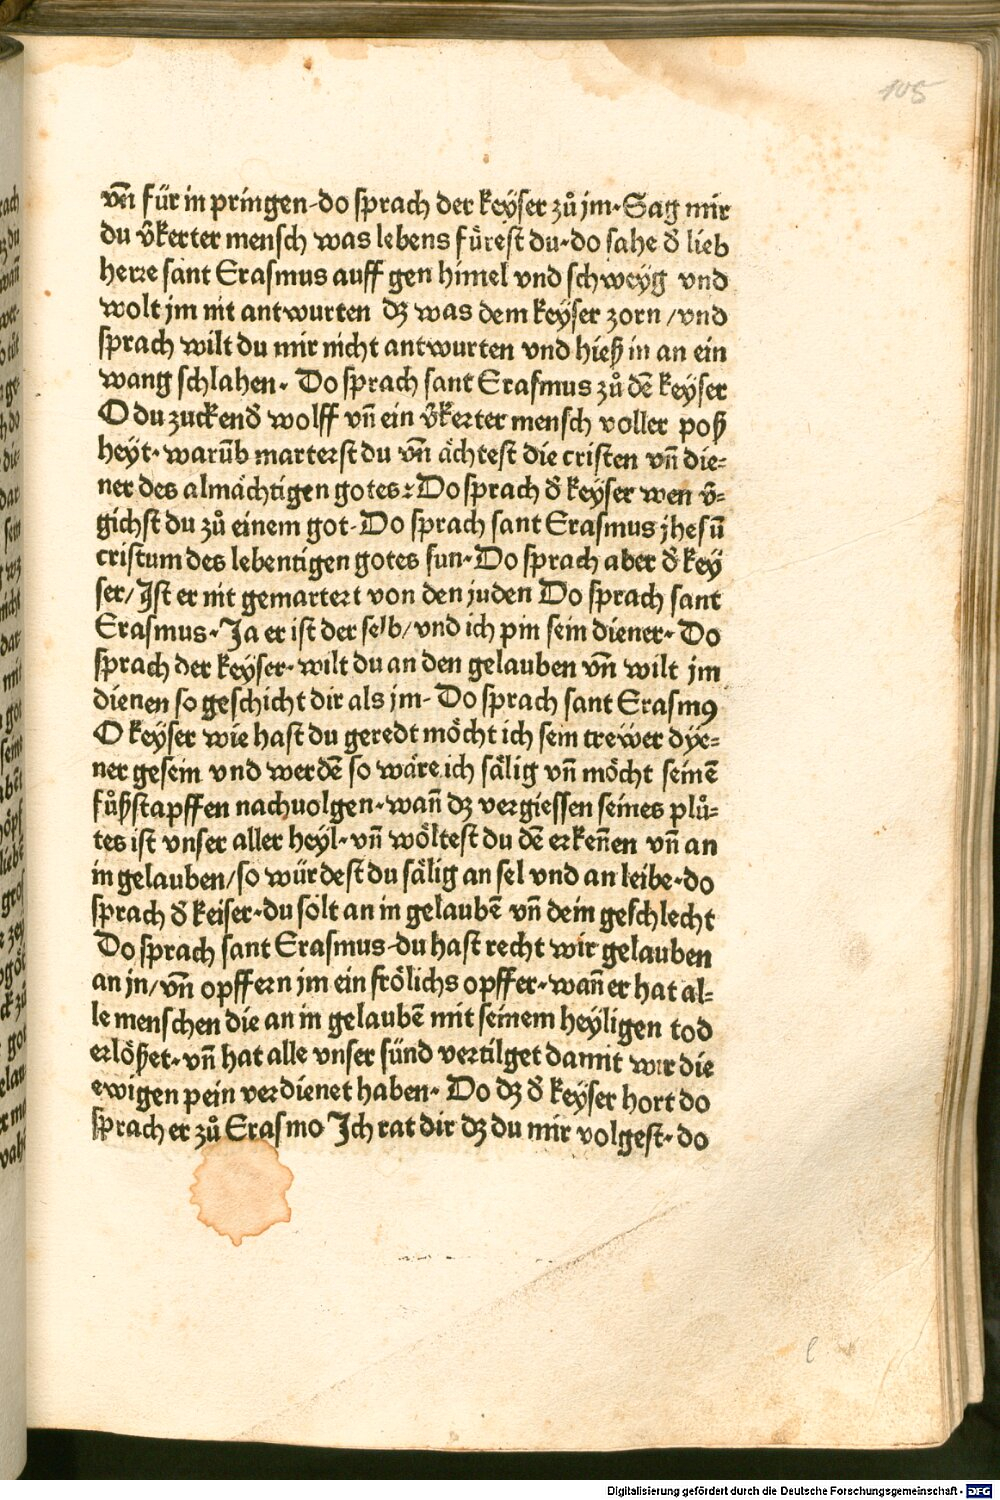 105
vn̄ für in pringen·do sprach der keÿser zů jm·Sag mir
du v̄kerter mensch was lebens fürest du·do sahe d̄ lieb
herre sant Erasmus auff gen himel vnd schweÿg vnd
wolt jm nit antwurten dz was dem keÿser zorn /vnd
sprach wilt du mir nicht antwurten vnd hieß in an ein
wang schlahen· Do sprach sant Erasmus zů dē keÿser
O du zuckend̄ wolff vn̄ ein v̄kerter mensch voller poß
heÿt·warūb marterst du vn̄ ächtest die cristen vn̄ die=
ner des almächtigen gotes: Do sprach d̄ keÿser wen v̄=
gichst du zů einem got·Do sprach sant Erasmus jhesū
cristum des lebentigen gotes sun·Do sprach aber d̄ keÿ
ser/Ist er nit gemartert von den juden Do sprach sant
Erasmus·Ja er ist der selb/vnd ich pin sein diener·Do
sprach der keÿser·wilt du an den gelauben vn̄ wilt jm
dienen so geschicht dir als jm· Do sprach sant Erasmꝰ
O keÿser wie hast du geredt möcht ich sein trewer dÿe=
ner gesein vnd werdē so wäre ich sälig vn̄ möcht seinē
fůßstapffen nachuolgen·wan̄ dz vergiessen seines plů=
tes ist vnser aller heÿl·vn̄ wöltest du dē erken̄en vn̄ an
in gelauben/so würdest du sälig an sel vnd an leibe·do
sprach d̄ keiser·du solt an in gelaubē vn̄ dein geschlecht
Do sprach sant Erasmus·du hast recht wir gelauben
an jn/vn̄ opffern jm ein frölichs opffer·wan̄ er hat al=
le menschen die an in gelaubē mit seinem heÿligen tod
erlößet·vn̄ hat alle vnser sünd vertilget damit wir die
ewigen pein verdienet haben· Do dz d̄ keÿser hort do
sprach er zů Erasmo Ich rat dir dz du mir volgest·do
Digitalisierung gefördert durch die Deutsche Forschungsgemeinschaft - DFG